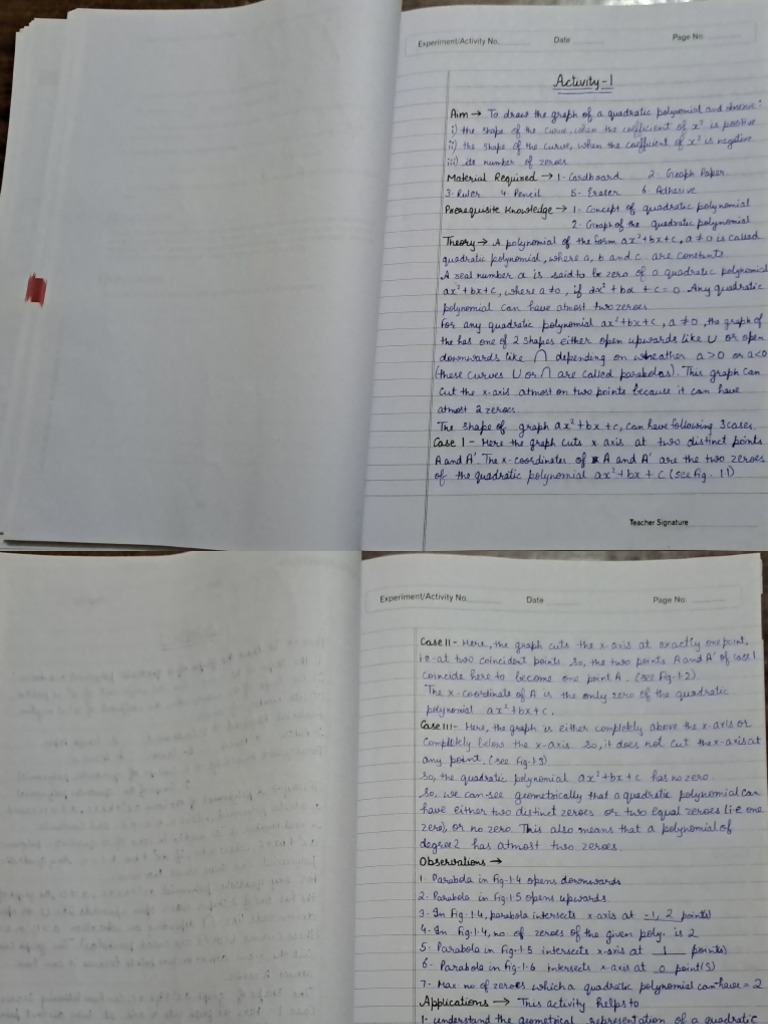 Experiment/Activity No.
Date
Page No.
Activity-1
Aim → To draw the graph of a quadratic polynomial and observe:
i) the shape of the curve, when the coefficient of x² is positive
ii) the shape of the curve, when the coefficient of x² is negative
iii) its number of zeroes
Material Required → 1- Cardboard 2- Graph Paper
3- Ruler 4 Pencil 5- Eraser 6- Adhesive
Prerequisite Knowledge → 1- Concept of quadratic polynomial
2- Graph of the quadratic polynomial
Theory → A polynomial of the form ax²+bx+c, a ≠ 0 is called
quadratic polynomial, where a, b and c are constants.
A real number α is said to be zero of a quadratic polynomial
ax²+bx+c, where a≠0, if aα² + bα + c = 0. Any quadratic
polynomial can have atmost two zeroes.
For any quadratic polynomial ax²+bx+c, a ≠ 0, the graph of
the has one of 2 shapes either open upwards like ∪ or open
downwards like ∩ depending on wheather a>0 or a<0
(these curves ∪ or ∩ are called parabolas). This graph can
cut the x-axis atmost on two points because it can have
atmost 2 zeroes.
The shape of graph ax²+bx+c, can have following 3 cases.
Case I - Here the graph cuts x axis at two distinct points
A and A'. The x-coordinates of A and A' are the two zeroes
of the quadratic polynomial ax²+bx+c (see Fig. 1.1)
Teacher Signature
Experiment/Activity No.
Date
Page No.
Case II - Here, the graph cuts the x-axis at exactly one point,
i.e. at two coincident points. So, the two points A and A' of case I
coincide here to become one point A. (see Fig-1.2)
The x-coordinate of A is the only zero of the quadratic
polynomial ax²+bx+c.
Case III- Here, the graph is either completly above the x-axis or
completly below the x-axis. So, it does not cut the x-axis at
any point. (see Fig-1.3)
So, the quadratic polynomial ax²+bx+c has no zero.
So, we can see geometrically that a quadratic polynomial can
have either two distinct zeroes or two equal zeroes (i.e one
zero), or no zero. This also means that a polynomial of
degree 2 has atmost two zeroes.
Observations →
1- Parabola in Fig-1.4 opens downwards
2- Parabola in Fig-1.5 opens upwards.
3- In Fig-1.4, parabola intersects x-axis at -1, 2 point(s)
4- In Fig-1.4, no. of zeroes of the given poly. is 2
5- Parabola in Fig-1.5 intersects x-axis at 1 point(s)
6- Parabola in Fig-1.6 intersects x-axis at 0 point(s)
7- Max no of zeroes which a quadratic polynomial can have = 2
Applications → This activity helps to
1- understand the geometrical representation of a quadratic